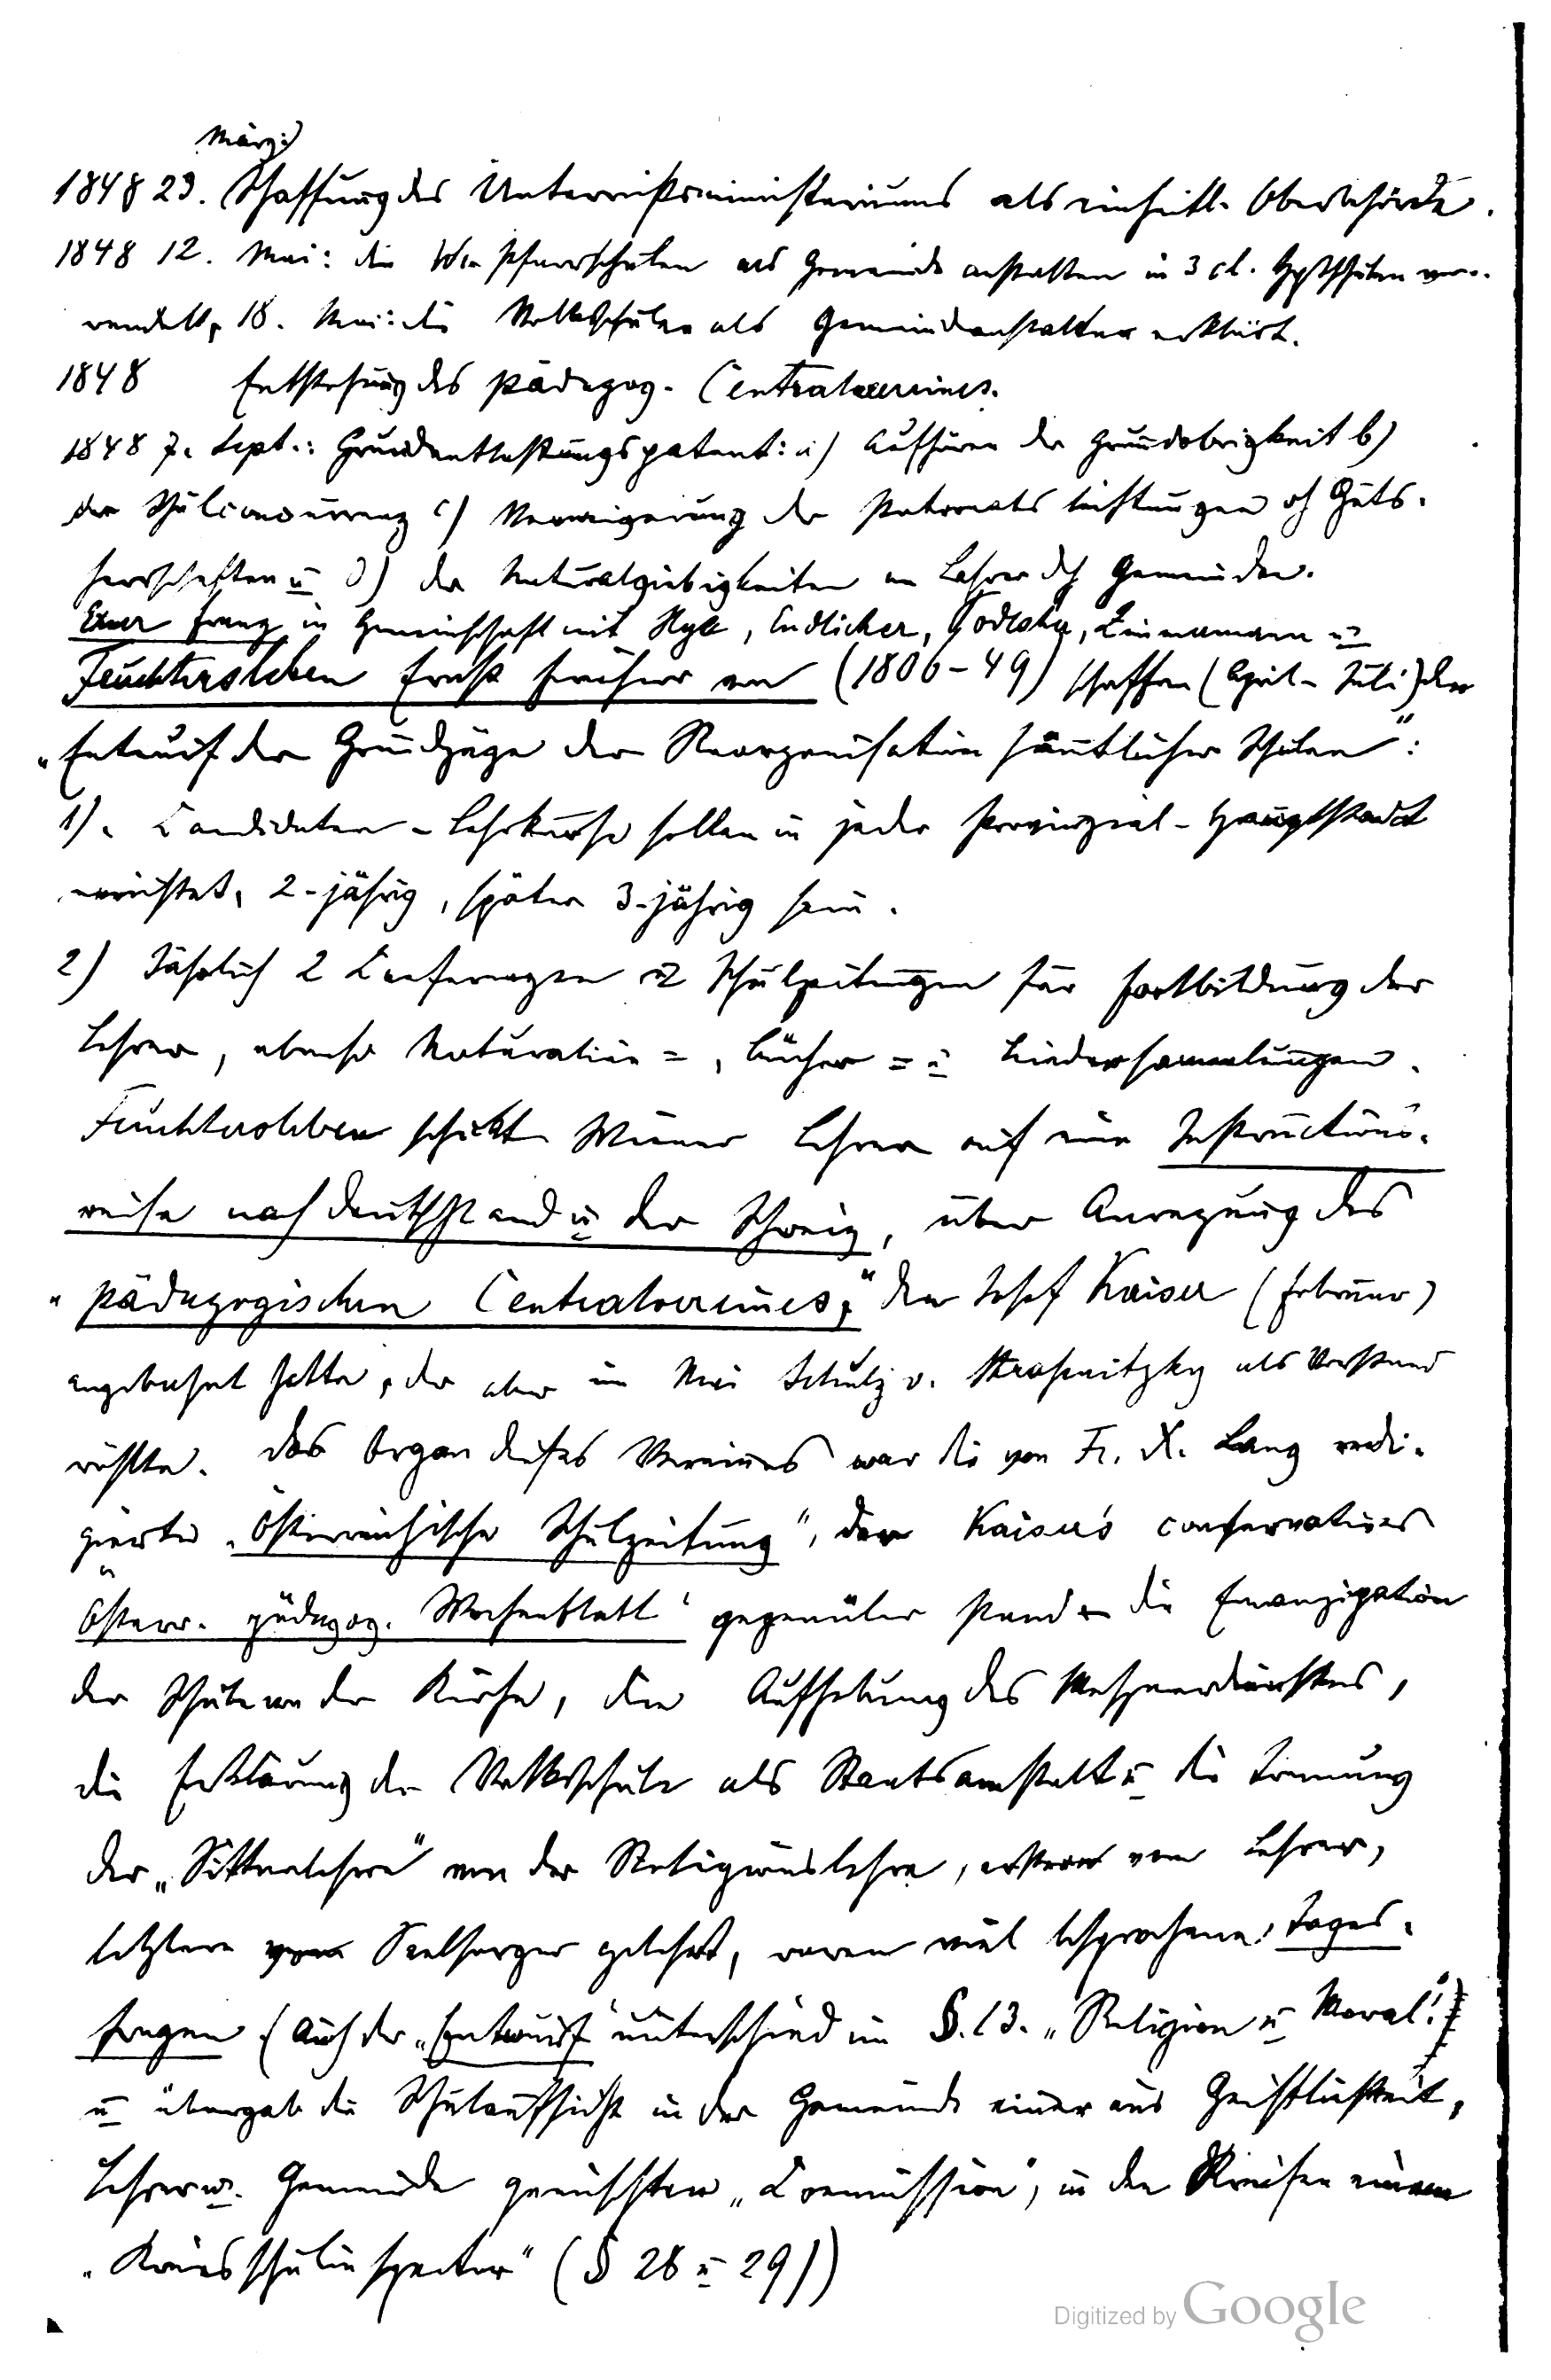 März:
1848 23. Schaffung des Unterrichtsministeriums als einheitl. Oberbehörde.
1848 12. Mai: die Pfarrschulen als Gemeindeanstalten in 3 cl. Hptschulen ver-
wandelt, 18. Mai: die Volksschulen als Gemeindeanstalten erklärt.
1848 Entstehung des pädagog. Centralvereines.
1848 7. Sept.: Grundentlastungspatent: a) Aufhören der Grundobrigkeit b)
der Schulconcurrenz c) Verweigerung der Patronatsleistungen dch Guts-
herrschaften u d) der Naturalgiebigkeiten an Lehrer dch Gemeinden.
Exner Franz in Gemeinschaft mit Hye, Endlicher, Zimmermann u
Feuchtersleben Ernst Freiherr von (1806-49) schaffen (April-Juli) den
„Entwurf der Grundzüge der Reorganisation sämtlicher Schulen":
1). Candidaten-Lehrkurse sollen in jeder Provinzial-Hauptstadt
errichtet, 2-jährig, später 3-jährig sein.
2) Jährlich 2 Conferenzen u Schulzeitungen für Fortbildung der
Lehrer, ebenso Naturalien=, Bücher= u Liedersammlungen.
Feuchtersleben schickt Wiener Lehrer auf eine Instructions-
reise nach Deutschland u der Schweiz, über Anregung des
„pädagogischen Centralvereines", den Josef Kaiser (Februar)
angebahnt hatte, der aber im Mai Schulz v. Straßnitzky als Vorstand
wählte. Das Organ dieses Vereines war die von Fr. X. Lang redi-
gierte „Österreichische Schulzeitung", der Kaiser's conservatives
„Österr. pädagog. Wochenblatt" gegenüber stand die Emanzipation
der Schule von der Kirche, die Aufhebung des Meßnerdienstes,
die Erklärung der Volksschule als Staatsanstalt u die Trennung
der „Sittenlehre" von der Religionslehre, erstere vom Lehrer,
letztere vom Seelsorger gelehrt, waren viel besprochene Tages-
fragen (Auch der „Entwurf" unterschied im §. 13. „Religion u Moral")
u übergab die Schulaufsicht in der Gemeinde einer aus Geistlichkeit,
Lehrer u. Gemeinde gemischten „Commission", in den Kreisen einem
„Kreisschulinspector" (§ 28 u 29))
Digitized by Google